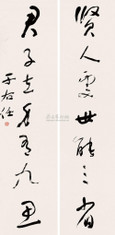 賢人處世能三省
君子立身有九思
于右任